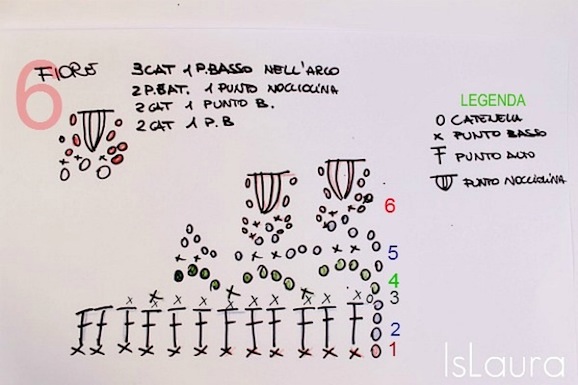 6
FIORE
3 CAT 1 P.BASSO NELL'ARCO
2 P.BAT. 1 PUNTO NOCCIOLINA
2 CAT 1 PUNTO B.
2 CAT 1 P.B
LEGENDA
O CATENELLA
X PUNTO BASSO
PUNTO ALTO
PUNTO NOCCIOLINA
6
5
4
3
2
1
IsLaura